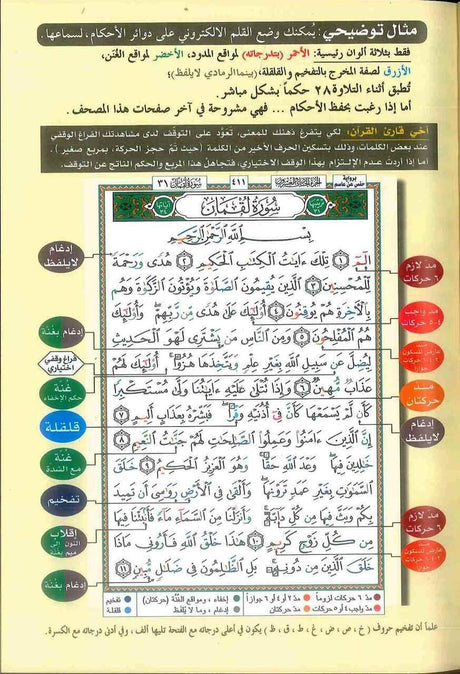 مثال توضيحي: يُمكنك وضع القلم الالكتروني على دوائر الأحكام، لسماعها.
فقط بثلاثة ألوان رئيسية: الأحمر (بتدرجاته) لمواقع المدود، الأخضر لمواقع الغُنَن،
الأزرق لصفة المخرج بالتفخيم والقلقلة، (بينما الرمادي لا يلفظ)؛
تُطبق أثناء التلاوة ٢٨ حكماً بشكل مباشر.
أما إذا رغبت بحفظ الأحكام ... فهي مشروحة في آخر صفحات هذا المصحف.
أخي قارئ القرآن: لكي يتفرغ ذهنك للمعنى، تعوَّد على التوقف لدى مشاهدتك الفراغ الوقفي
عند بعض الكلمات، وذلك بتسكين الحرف الأخير من الكلمة (حيث تمَّ حجز الحركة، بمربع صغير).
أما إذا أردت عدم الإلتزام بهذا الوقف الاختياري، فتجاهل هذا المربع والحكم الناتج عن التوقف.
سُورَةُ لُقْمَان ٣١
٤١١
برواية
حفص عن عاصم
٣١
سُورَةُ لُقْمَان
بِسْمِ اللَّهِ الرَّحْمَٰنِ الرَّحِيمِ
الٓمٓ ١ تِلْكَ ءَايَٰتُ ٱلْكِتَٰبِ ٱلْحَكِيمِ ٢ هُدًى وَرَحْمَةً
لِّلْمُحْسِنِينَ ٣ ٱلَّذِينَ يُقِيمُونَ ٱلصَّلَوٰةَ وَيُؤْتُونَ ٱلزَّكَوٰةَ وَهُم
بِٱلْأَخِرَةِ هُمْ يُوقِنُونَ ٤ أُو۟لَٰٓئِكَ عَلَىٰ هُدًى مِّن رَّبِّهِمْ وَأُو۟لَٰٓئِكَ
هُمُ ٱلْمُفْلِحُونَ ٥ وَمِنَ ٱلنَّاسِ مَن يَشْتَرِى لَهْوَ ٱلْحَدِيثِ
لِيُضِلَّ عَن سَبِيلِ ٱللَّهِ بِغَيْرِ عِلْمٍ وَيَتَّخِذَهَا هُزُوًا أُو۟لَٰٓئِكَ لَهُمْ
عَذَابٌ مُّهِينٌ ٦ وَإِذَا تُتْلَىٰ عَلَيْهِ ءَايَٰتُنَا وَلَّىٰ مُسْتَكْبِرًا
كَأَن لَّمْ يَسْمَعْهَا كَأَنَّ فِىٓ أُذُنَيْهِ وَقْرًا فَبَشِّرْهُ بِعَذَابٍ أَلِيمٍ ٧
إِنَّ ٱلَّذِينَ ءَامَنُوا۟ وَعَمِلُوا۟ ٱلصَّٰلِحَٰتِ لَهُمْ جَنَّٰتُ ٱلنَّعِيمِ ٨
خَٰلِدِينَ فِيهَا وَعْدَ ٱللَّهِ حَقًّا وَهُوَ ٱلْعَزِيزُ ٱلْحَكِيمُ ٩ خَلَقَ
ٱلسَّمَٰوَٰتِ بِغَيْرِ عَمَدٍ تَرَوْنَهَا وَأَلْقَىٰ فِى ٱلْأَرْضِ رَوَٰسِىَ أَن تَمِيدَ
بِكُمْ وَبَثَّ فِيهَا مِن كُلِّ دَآبَّةٍ وَأَنزَلْنَا مِنَ ٱلسَّمَآءِ مَآءً فَأَنۢبَتْنَا فِيهَا
مِن كُلِّ زَوْجٍ كَرِيمٍ ١٠ هَٰذَا خَلْقُ ٱللَّهِ فَأَرُونِى مَاذَا
خَلَقَ ٱلَّذِينَ مِن دُونِهِۦ بَلِ ٱلظَّٰلِمُونَ فِى ضَلَٰلٍ مُّبِينٍ ١١
مد لازم
٦ حركات
مد واجب
٤-٥ حركات
مــد
حركتان
إدغام
لا يلفظ
مد لازم
٦ حركات
إدغام
لا يلفظ
إدغام بغُنة
فراغ وقفي
اختياري
غُنة
حكم الإخفاء
قلقلة
غُنة
مع الشدة
تفخيم
إقلاب
النون إلى
ميم بغنة
إدغام بغُنة
مدّ ٦ حركات لزوماً مدّ ٢ أو ٤ أو ٦ جوازاً إخفاء، ومواقع الغُنَّة (حركتان) تفخيم
مدّ واجب ٤ أو ٥ حركات مدّ حركتان إدغام، وما لا يُلفَظ قلقلة
علماً أن تفخيم حروف (خ، ص، ض، غ، ط، ق، ظ) يكون في أعلى درجاته مع الفتحة تليها ألف، وفي أدنى درجاته مع الكسرة.